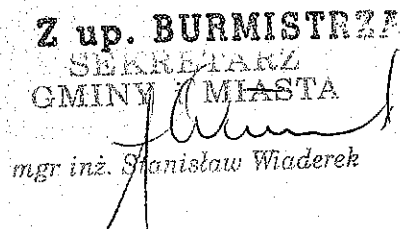 Z up. BURMISTRZA
SEKRETARZ
GMINY i MIASTA
mgr inż. Stanisław Wiaderek